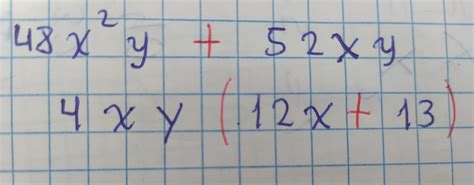 48x²y + 52xy
4xy (12x + 13)